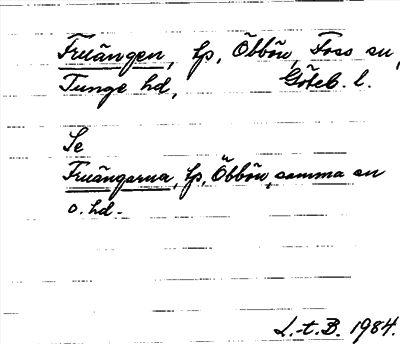 Fruängen, lp, Öbbön, Foss sn,
Tunge hd, Göteb. l.
Se
Fruängarna, lp, Öbbön, samma sn
o. hd.
L.t.B. 1984.